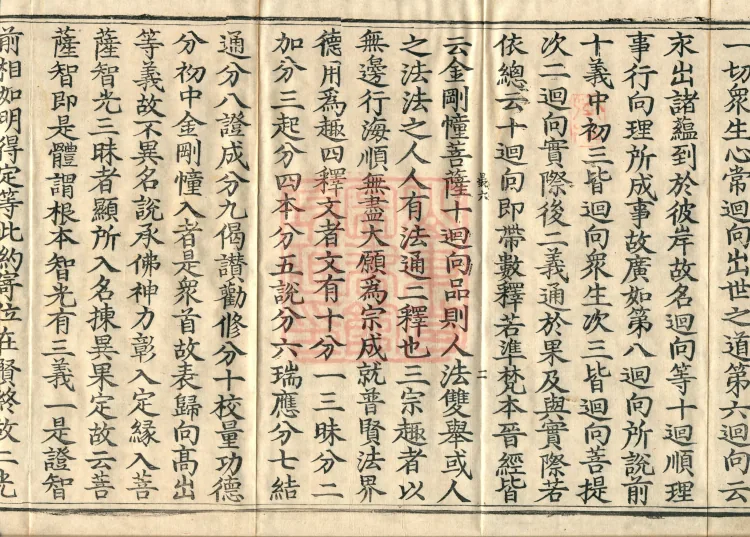 一切衆生心常迴向出世之道第六迴向云
求出諸蘊到於彼岸故名迴向等十迴順理
事行向理所成事故廣如第八迴向所説前
十義中初三皆迴向衆生次三皆迴向菩提
次二迴向實際後二義通於果及與實際若
依總云十迴向即帶數釋若準梵本晉經皆
云金剛幢菩薩十迴向品則人法雙舉或人
之法法之人人有法通二釋也三宗趣者以
無邊行海順無盡大願為宗成就普賢法界
德用為趣四釋文者文有十分一三昧分二
加分三起分四本分五說分六瑞應分七結
通分八證成分九偈讚勸修分十校量功德
分初中金剛幢入者是衆首故表歸向高出
等義故不異名說承佛神力彰入定緣入菩
薩智光三昧者顯所入名揀異果定故云菩
薩智即是體謂根本智光有三義一是證智
前相如明得定等此約寄位在賢終故二光